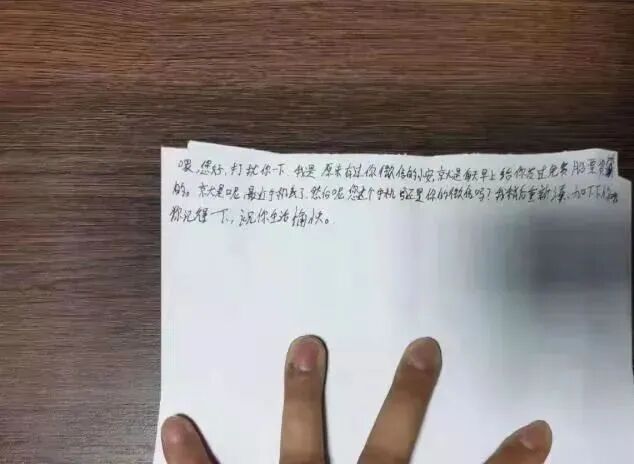 喂,您好,打扰你一下 我是 原来有过你微信的小安,京大是每天早上给你发过免费股票资
的。京大是呢 最近手机丢了,然后呢,您这个手机号还是你的微信吗?我稍后重新 加下下
你记得一下,祝你生活愉快。